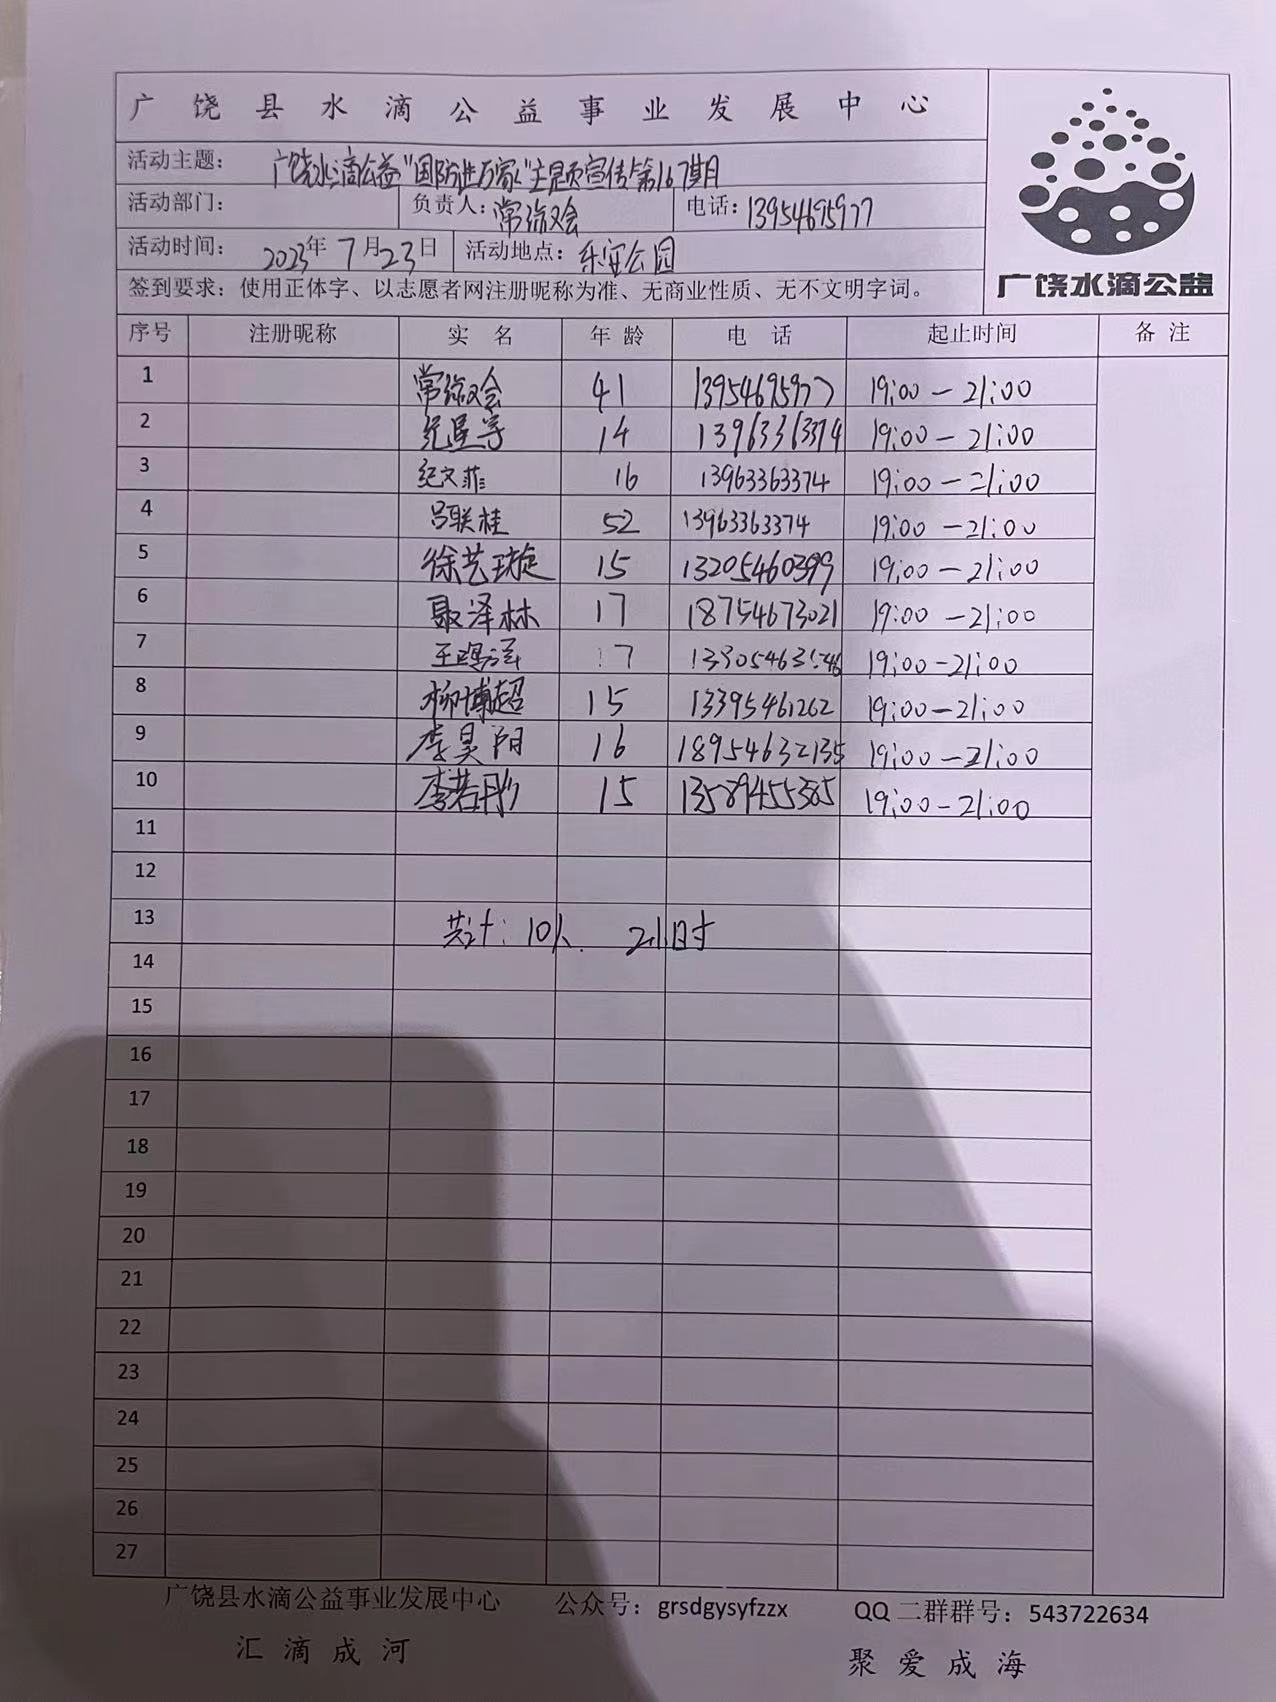 广饶县水滴公益事业发展中心
活动主题: 广饶水滴公益"国防进万家"主题宣传第167期
活动部门: 负责人: 常 会 电话: 13954695977
活动时间: 2023年7月23日 活动地点: 乐安公园
广饶水滴公益
签到要求: 使用正体字、以志愿者网注册昵称为准、无商业性质、无不文明字词。
序号 注册昵称 实 名 年 龄 电 话 起止时间 备 注
1 常 会 41 13954695977 19:00-21:00
2 14 13963363374 19:00-21:00
3 纪文菲 16 13963363374 19:00-21:00
4 吕联桂 52 13963363374 19:00-21:00
5 徐艺璇 15 13205460399 19:00-21:00
6 聂泽林 17 18754673021 19:00-21:00
7 17 19:00-21:00
8 柳博超 15 13395461262 19:00-21:00
9 李昊阳 16 18954632135 19:00-21:00
10 李若彤 15 13589455385 19:00-21:00
11
12
13 共计: 10人. 2小时
14
15
16
17
18
19
20
21
22
23
24
25
26
27
广饶县水滴公益事业发展中心 公众号: grsdgysyfzzx QQ 二群群号: 543722634
汇滴成河 聚爱成海